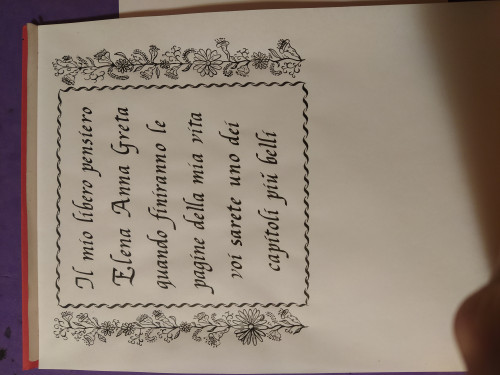 Il mio libero pensiero
Elena Anna Greta
quando finiranno le
pagine della mia vita
voi sarete uno dei
capitoli più belli